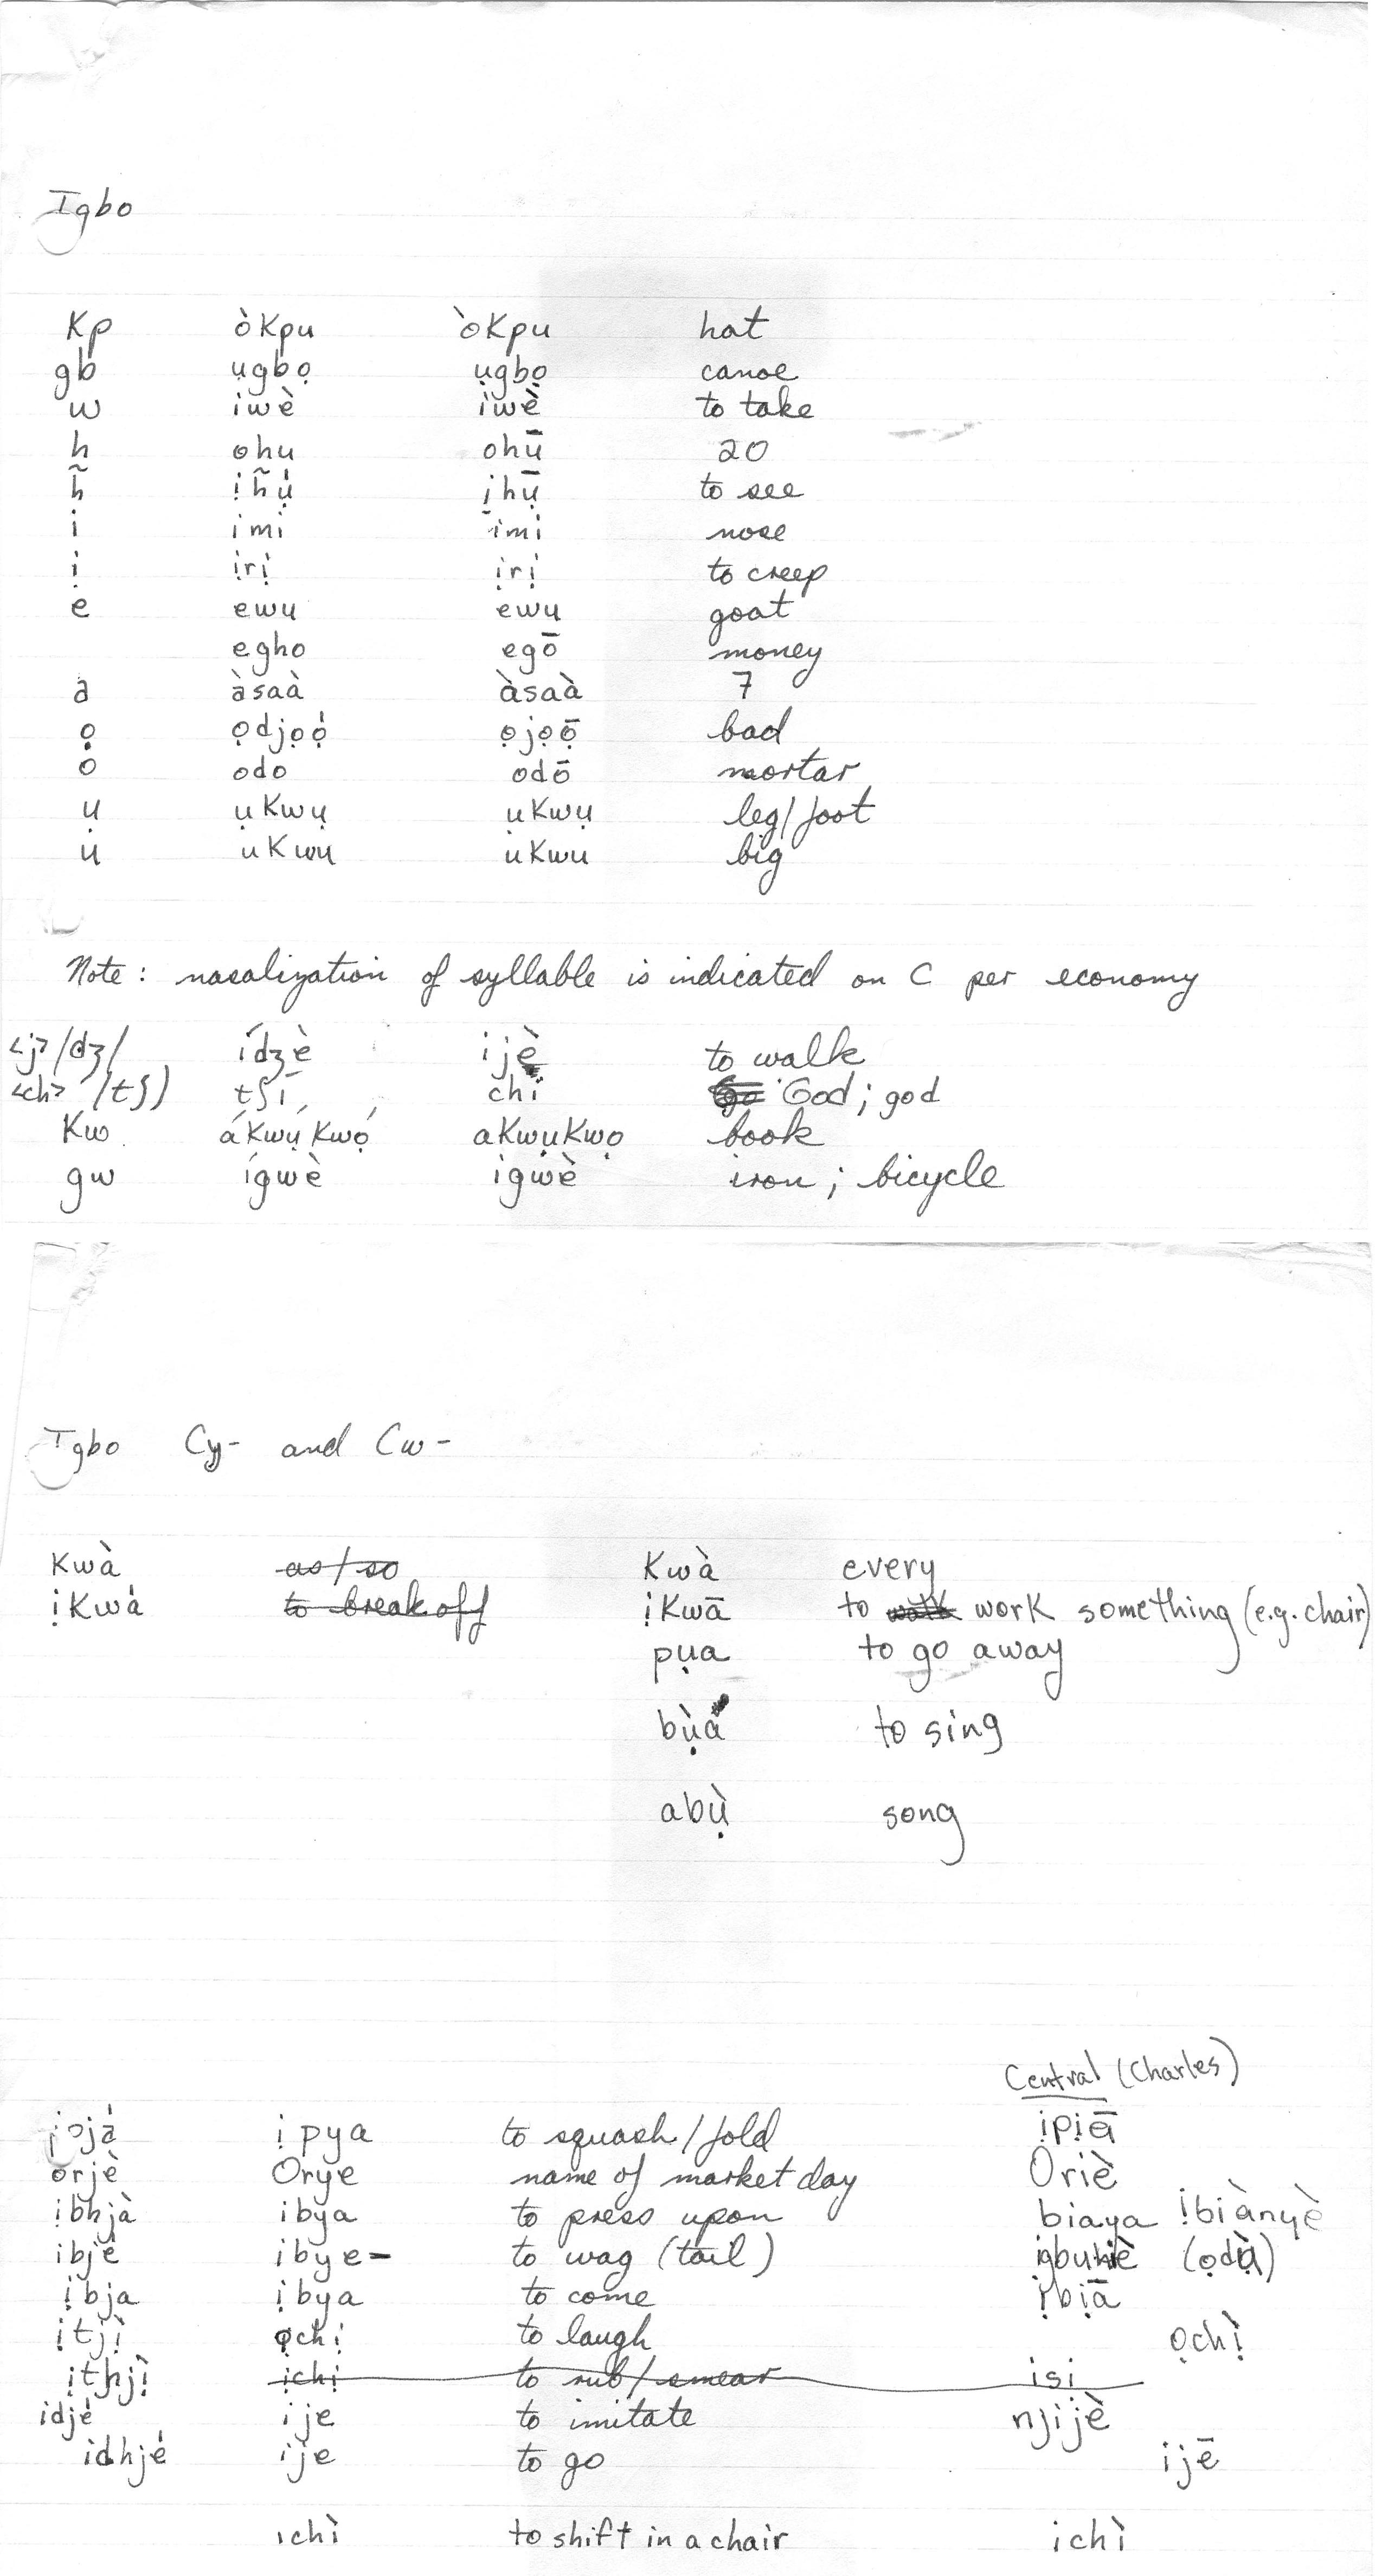 Igbo
kp òkpu òkpu hat
gb ụgbọ ụgbọ canoe
w iwè iwè to take
h ohu ohū 20
h̃ ịh̃ụ́ ịhụ̄ to see
i imi imi nose
ị ịrị ịrị to creep
e ewu ewu goat
egho egō money
a àsaà àsaà 7
ọ ọdjọọ́ ọjọọ̄ bad
o odo odō mortar
ụ ụkwụ ụkwụ leg/foot
u ukwu ukwu big
Note: nasalization of syllable is indicated on C per economy
<j> /dʒ/ ídʒè ijè to walk
<ch> /tʃ) tʃí chi God; god
kw ákwụ́kwọ́ akwụkwọ book
gw ígwè igwè iron; bicycle
Igbo Cy- and Cw-
kwà as/so kwà every
ịkwá to break off ịkwā to work something (e.g. chair)
pụa to go away
bụ̀a to sing
abụ̀ song
Central (Charles)
ịpya to squash/fold ịpịā
orjè Orye name of market day Oriè
ịbhjà ibya to press upon biaya ịbiànyè
ibjé ibye- to wag (tail) (ọdụ̀)
ịbja ịbya to come ịbịā
ịtjị̀ ọchị to laugh ọchị̀
ịthjị̀ ịchị to rub/smear isi
idjé ije to imitate njijè
idhjé ije to go ijē
ichì to shift in a chair ichì